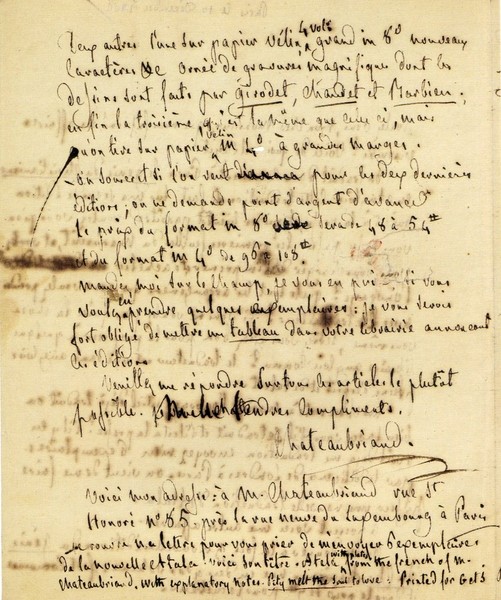 deux autres l'une sur papier vélin, 4 vols grand in 8° nouveaux
caractères & ornée de gravures magnifiques dont les
dessins sont faits par Girodet, Chaudet et Barbier;
enfin la troisième qui est la même que celle ci, mais
qu'on tire sur papier vélin in 4° à grandes marges.
on souscrit si l'on veut pour les deux dernières
éditions; on ne demande point d'argent d'avance
le prix du format in 8° sera de 48 à 54 ₶
et du format in 4° de 96 à 108 ₶
mandez moi sur le champ, je vous en prie si vous
voulez en prendre quelques exemplaires: je vous serois
fort obligé de mettre un tableau dans votre librairie annonçant
les éditions
Veuillez me répondre sur tous les articles le plutôt
possible. tendres compliments.
Chateaubriand.
Voici mon adresse: à M. Chateaubriand rue St
Honoré N° 85. près la rue neuve du Luxembourg à Paris
je rouvre ma lettre pour vous prier de m'envoyer 6 exemplaires
de la nouvelle Atala. voici son titre. Atala with plates from the french of M.
Chateaubriand. with explanatory notes. Pity melt the soul to love: Printed for